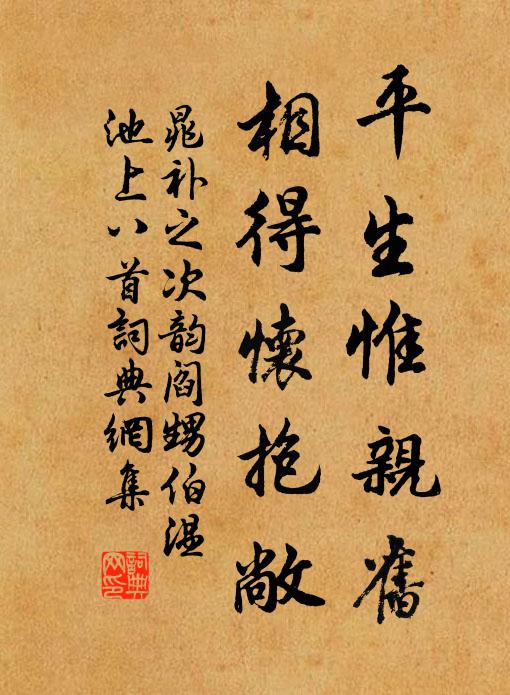 平生惟親舊
相得懷抱敞
晁补之次韵阎甥伯温
池上八首詞典網集
詞典
网印